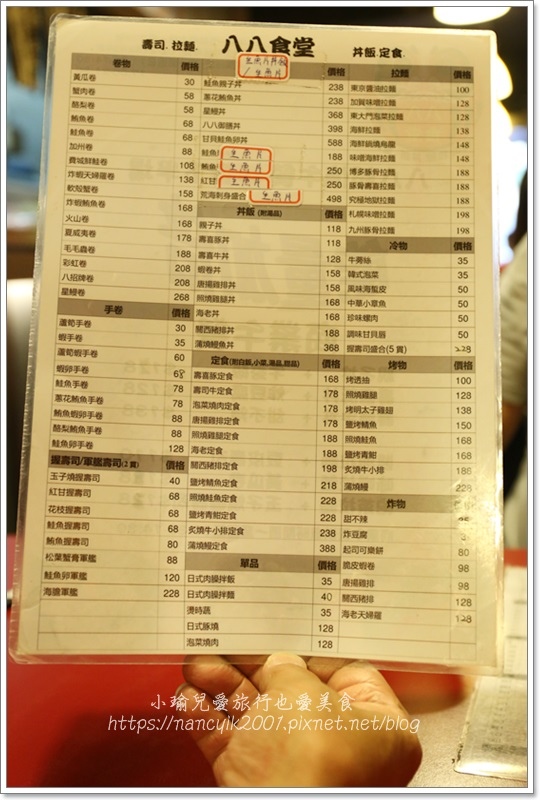 壽司.拉麵.
八八食堂
丼飯.定食.
卷物 價格
黃瓜卷 30
蟹肉卷 58
酪梨卷 58
鮪魚卷 68
鮭魚卷 68
加州卷 88
費城鮮鮭卷 108
炸蝦天婦羅卷 138
軟殼蟹卷 158
炸蝦鮪魚卷
火山卷 168
夏威夷卷 168
毛毛蟲卷 188
彩虹卷
八招牌卷 208
星鰻卷 268
手卷 價格
蘆筍手卷 30
蝦手卷 35
蘆筍蝦手卷 60
蝦卵手卷 68
鮭魚手卷 78
蔥花鮪魚手卷 78
鮪魚蝦卵手卷 88
酪梨鮪魚手卷 88
鮭魚卵手卷 128
握壽司/軍艦壽司(2貫) 價格
玉子燒握壽司 40
紅甘握壽司 68
花枝握壽司 68
鮭魚握壽司 68
鮪魚握壽司 80
松葉蟹膏軍艦 80
鮭魚卵軍艦 120
海膽軍艦 228
生魚片丼飯
/生魚片 價格
鮭魚親子丼 238
蔥花鮪魚丼 238
星鰻丼 368
八八御膳丼 398
甘貝鮭魚卵丼 588
鮭魚 生魚片 188
鮪魚 生魚片 250
紅甘 生魚片 250
荒海刺身盛合 生魚片 498
丼飯 (附湯品) 價格
親子丼 118
壽喜豚丼 118
壽喜牛丼 128
蝦卷丼 158
唐揚雞排丼 158
照燒雞腿丼 168
海老丼 168
關西豬排丼 188
蒲燒鰻魚丼 368
定食(附白飯,小菜,湯品,甜品) 價格
壽喜豚定食 168
壽司牛定食 178
泡菜燒肉定食 178
唐揚雞排定食 178
照燒雞腿定食 188
海老定食 188
關西豬排定食 198
鹽烤鯖魚定食 218
照燒鮭魚定食 228
鹽烤青魽定食 228
炙燒牛小排定食 238
蒲燒鰻定食 388
單品 價格
日式肉燥拌飯 35
日式肉燥拌麵 40
燙時蔬 35
日式豚燒 128
泡菜燒肉 128
拉麵 價格
東京醬油拉麵 100
加賀味噌拉麵 128
東大門泡菜拉麵 138
海鮮拉麵 148
海鮮鍋燒烏龍 148
味噌海鮮拉麵 158
博多豚骨拉麵 188
豚骨壽喜拉麵 188
究極地獄拉麵 188
札幌味噌拉麵 198
九州豚骨拉麵 198
冷物 價格
牛蒡絲 35
韓式泡菜 35
風味海蜇皮 50
中華小章魚 50
珍味螺肉 50
調味甘貝唇 50
握壽司盛合(5貫) 228
烤物 價格
烤透抽 100
照燒雞腿 128
烤明太子雞翅 138
鹽烤鯖魚 150
照燒鮭魚 168
鹽烤青魽 168
炙燒牛小排 188
蒲燒鰻 228
炸物 價格
甜不辣
炸豆腐
起司可樂餅 80
脆皮蝦卷 98
唐揚雞排 98
關西豬排 128
海老天婦羅 128
小瑜兒愛旅行也愛美食
https://nancyik2001.pixnet.net/blog